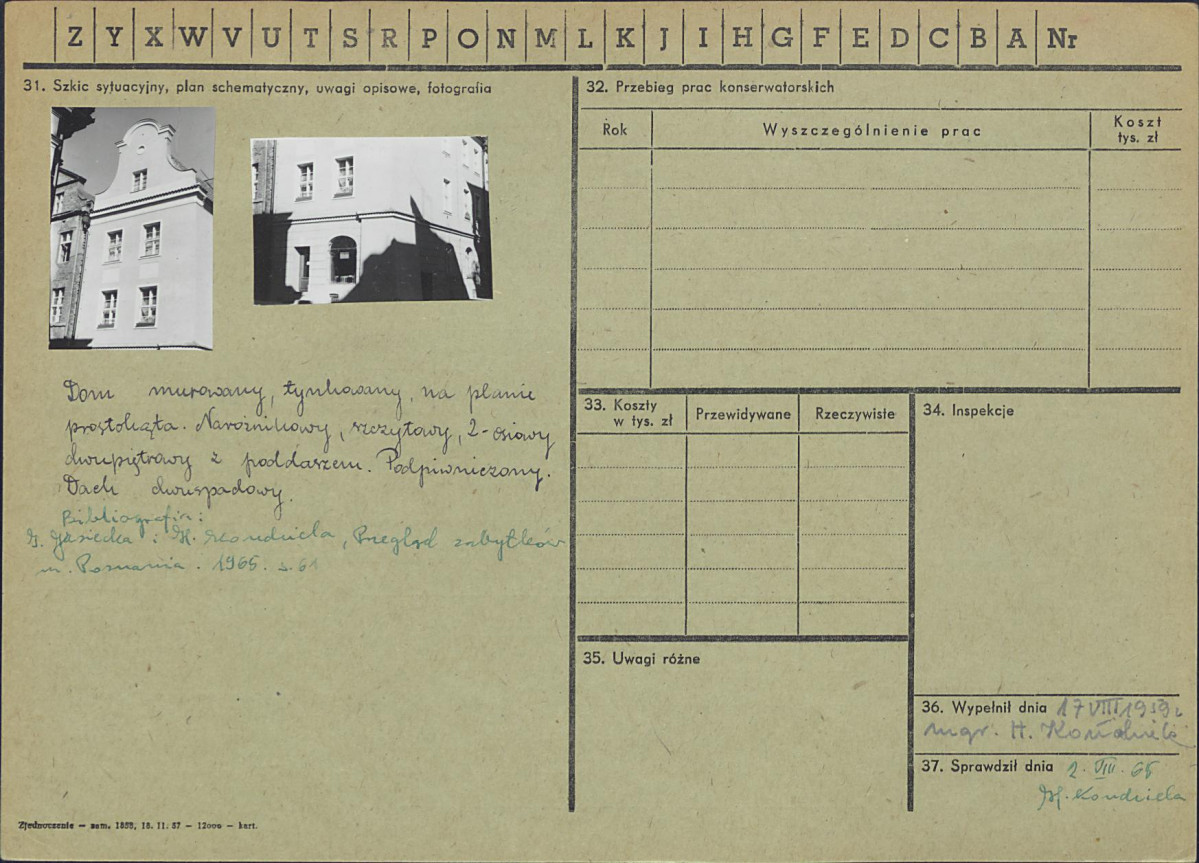 Z Y X W V U T S R P O N M L K J I H G F E D C B A Nr
31. Szkic sytuacyjny, plan schematyczny, uwagi opisowe, fotografia
Dom murowany, tynkowany, na planie
prostokąta. Narożnikowy, szczytowy, 2-osiowy
dwupiętrowy z poddaszem. Podpiwniczony.
Dach dwuspadowy.
Bibliografia:
i H. Kondziela, Przegląd zabytków
m. Poznania. 1965. s. 61
Zjednoczenie — zam. 1858, 18. 11. 57 — 12000 — kart.
32. Przebieg prac konserwatorskich
Rok Wyszczególnienie prac Koszt tys. zł
33. Koszty w tys. zł Przewidywane Rzeczywiste
34. Inspekcje
35. Uwagi różne
36. Wypełnił dnia 17 VIII 1959 r.
mgr. H.
37. Sprawdził dnia 2. VIII. 65
H. Kondziela